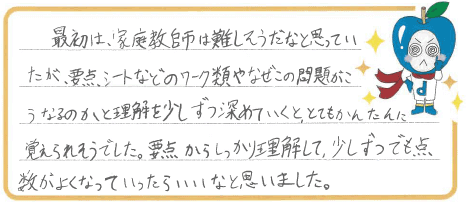 最初は、家庭教師は難しそうだなと思ってい
たが、要点、シートなどのワーク類やなぜこの問題がこ
うなるのかと理解を少しずつ深めていくと、とてもかんたんに
覚えられそうでした。要点からしっかり理解して、少しずつでも点
数がよくなっていったらいいなと思いました。
d